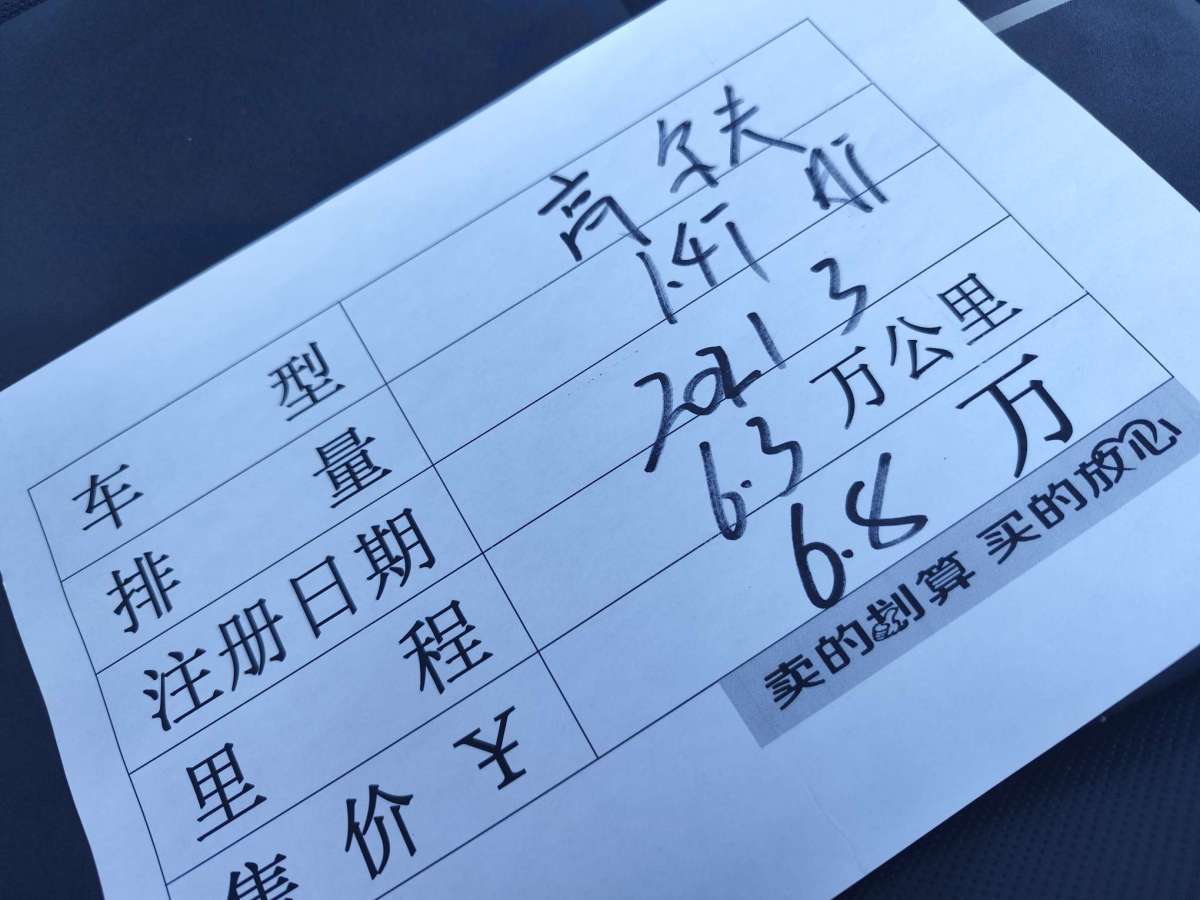 车型 高尔夫
排量 1.4T
注册日期 2021 3
里程 6.3万公里
售价￥ 6.8万
卖的划算 买的放心